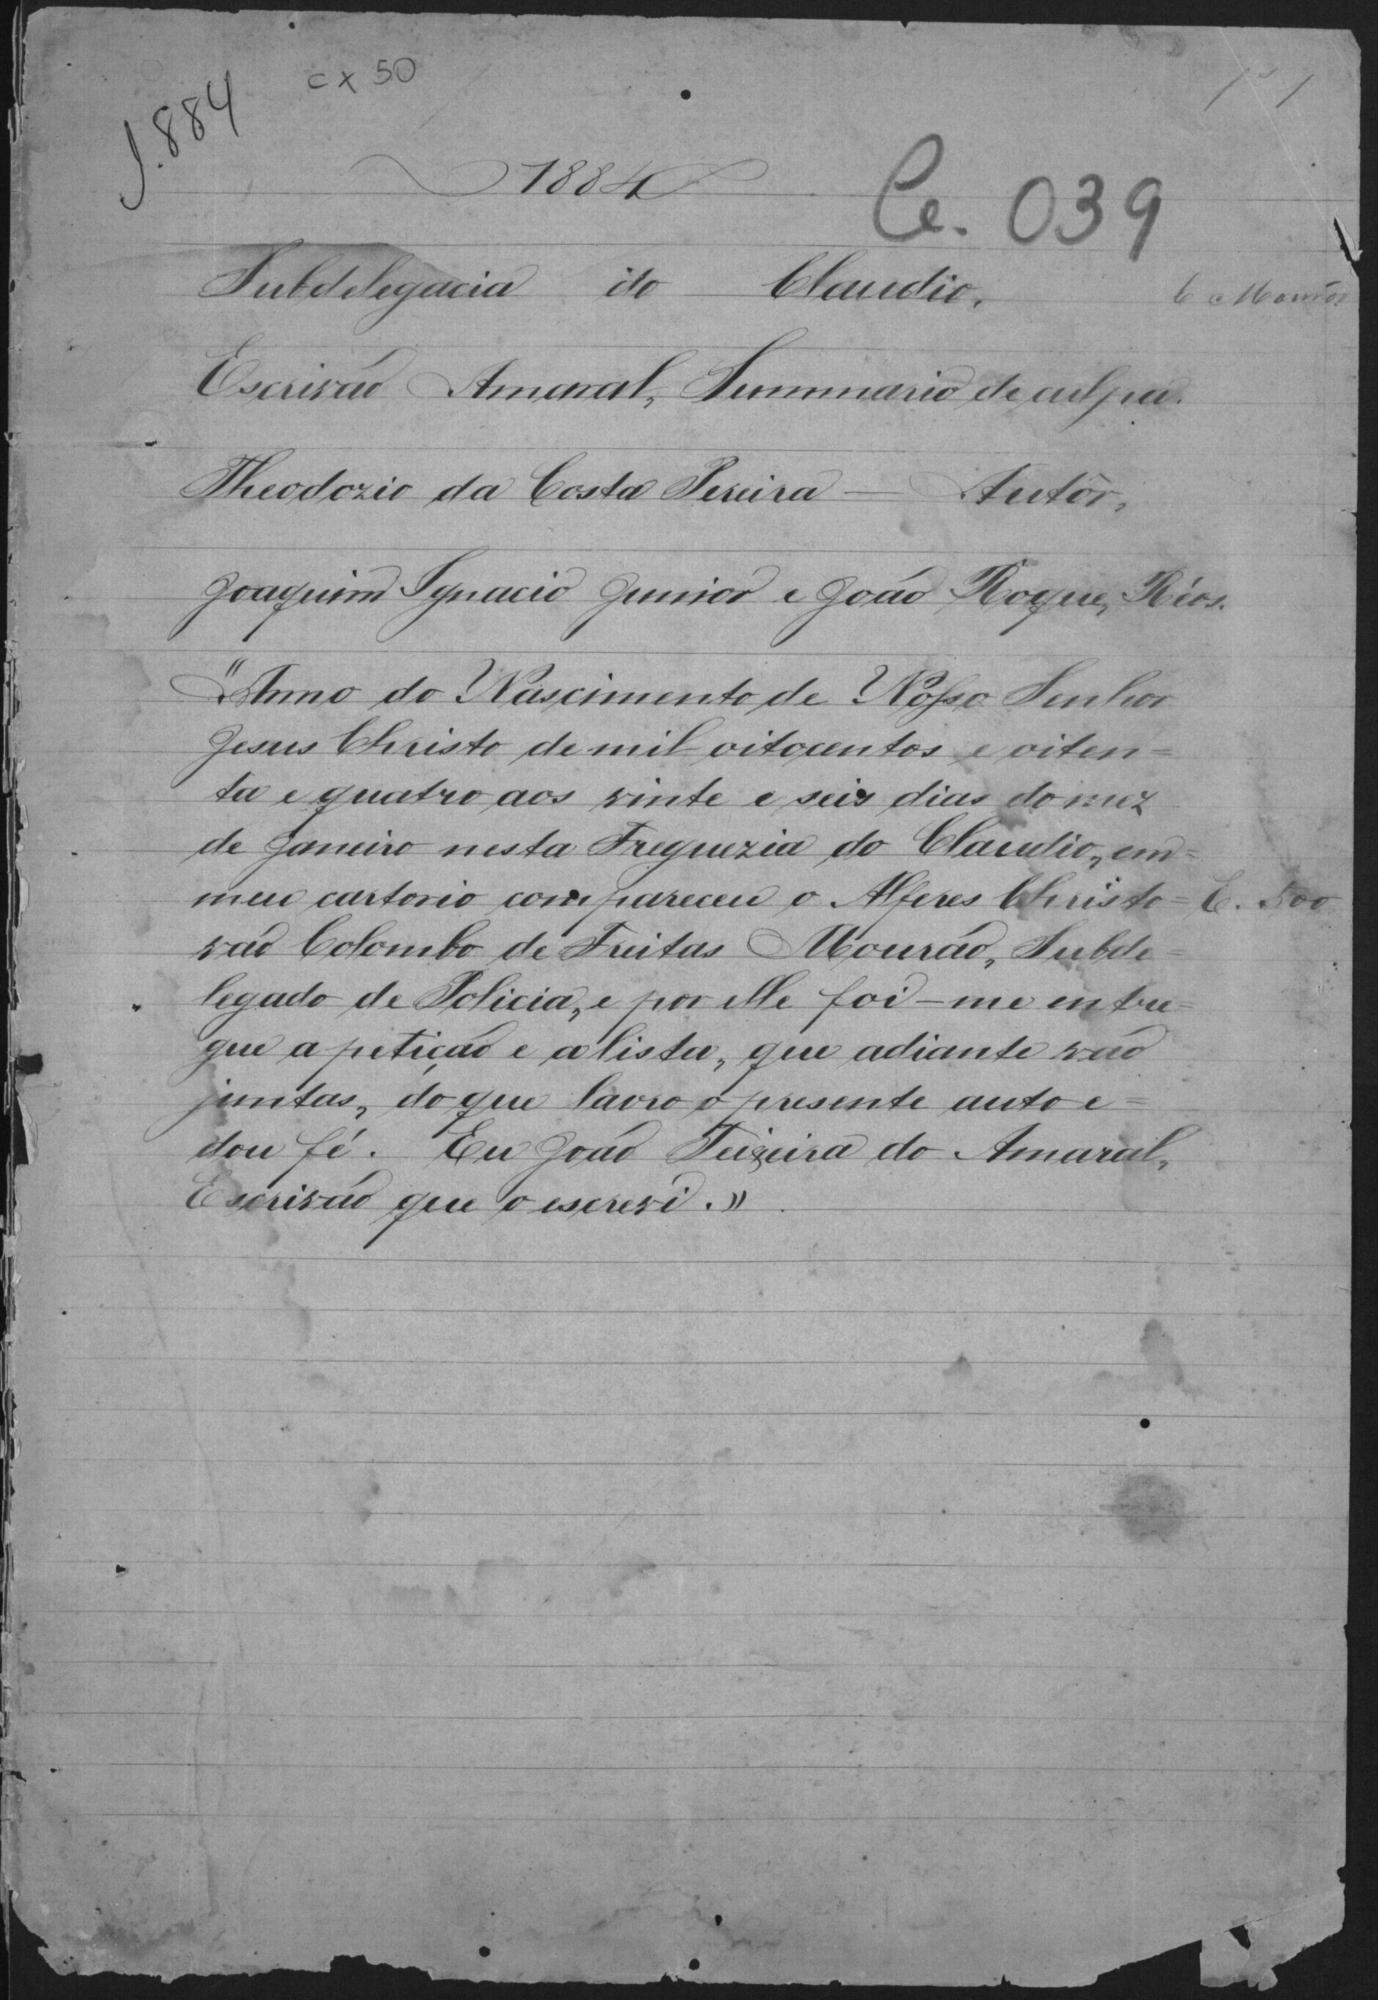 cx 50
1.884
1 1
1884
Ce. 039
Subdelegacia do Claudio.
Escrivão Amaral, Summario de culpa.
Theodozio da Costa Pereira — Autôr,
Joaquim Ignacio Junior e João Roque, Réos.
"Anno do Nascimento de Nosso Senhor
Jesus Christo de mil oitocentos e oiten=
ta e quatro aos vinte e seis dias do mez
de Janeiro nesta Freguezia do Claudio, em=
meu cartorio compareceu o Alferes Christo=
E. 500
vão Colombo de Freitas Mourão, Subde=
legado de Policia, e por elle foi-me entre=
gue a petição e a lista, que adiante vão
juntas, do que lavro o presente auto e=
dou fé. Eu João Teixeira do Amaral,
Escrivão que o escrevi.»